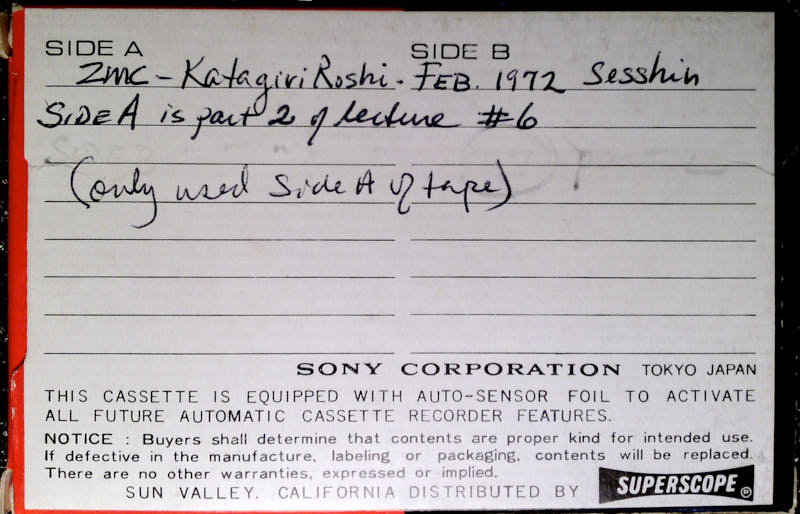 SIDE A SIDE B
ZMC - Katagiri Roshi - FEB. 1972 Sesshin
SIDE A is part 2 of lecture #6
(only used Side A of tape)
SONY CORPORATION TOKYO JAPAN
THIS CASSETTE IS EQUIPPED WITH AUTO-SENSOR FOIL TO ACTIVATE
ALL FUTURE AUTOMATIC CASSETTE RECORDER FEATURES.
NOTICE : Buyers shall determine that contents are proper kind for intended use.
If defective in the manufacture, labeling or packaging, contents will be replaced.
There are no other warranties, expressed or implied.
SUN VALLEY. CALIFORNIA DISTRIBUTED BY SUPERSCOPE®